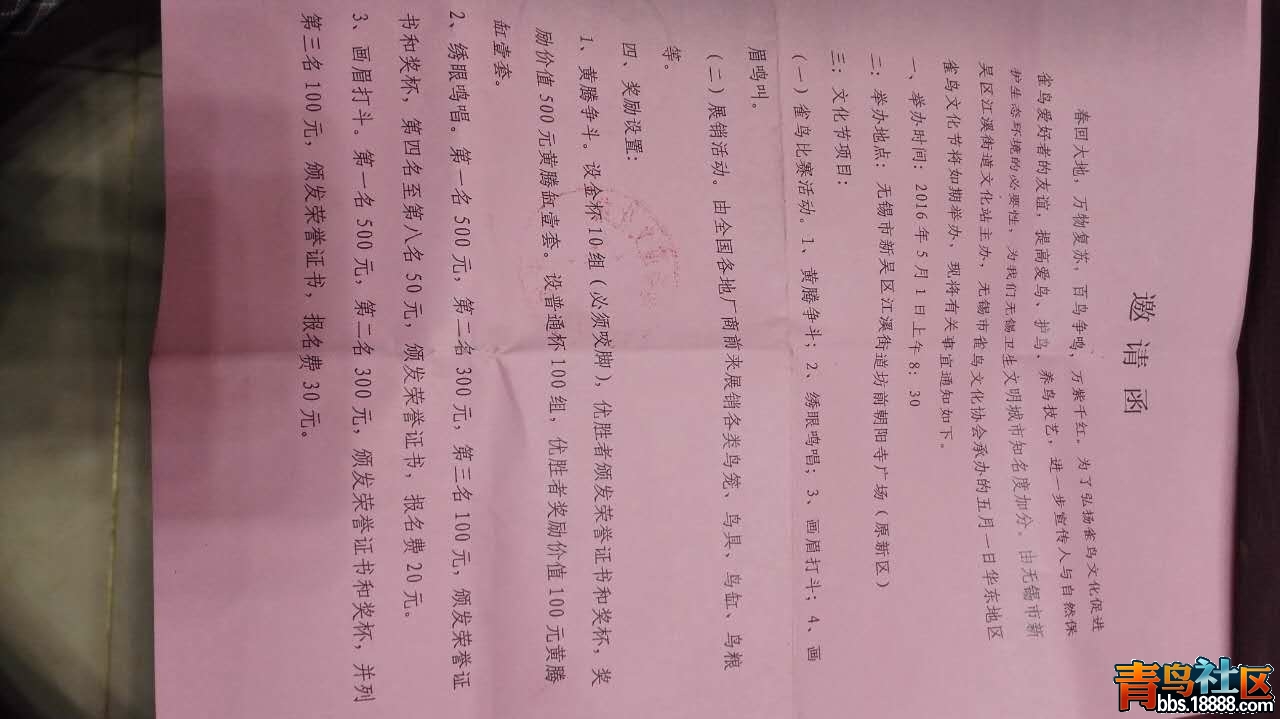 邀请函
春回大地，万物复苏，百鸟争鸣，万紫千红。为了弘扬雀鸟文化促进
雀鸟爱好者的友谊，提高爱鸟、护鸟、养鸟技艺，进一步宣传人与自然保
护生态环境的必要性，为我们无锡卫生文明城市知名度加分。由无锡市新
吴区江溪街道文化站主办，无锡市雀鸟文化协会承办的五月一日华东地区
雀鸟文化节将如期举办，现将有关事宜通知如下。
一、举办时间：2016年5月1日上午8：30
二：举办地点：无锡市新吴区江溪街道坊前朝阳寺广场（原新区）
三：文化节项目：
（一）雀鸟比赛活动。1、黄腾争斗；2、绣眼鸣唱；3、画眉打斗；4、画
眉鸣叫。
（二）展销活动。由全国各地厂商前来展销各类鸟笼、鸟具、鸟缸、鸟粮
等。
四、奖励设置：
1、黄腾争斗。设金杯10组（必须咬脚），优胜者颁发荣誉证书和奖杯，奖
励价值500元黄腾缸壹套。设普通杯100组，优胜者奖励价值100元黄腾
缸壹套。
2、绣眼鸣唱。第一名500元，第二名300元，第三名100元，颁发荣誉证
书和奖杯，第四名至第八名50元，颁发荣誉证书，报名费20元。
3、画眉打斗。第一名500元，第二名300元，颁发荣誉证书和奖杯，并列
第三名100元，颁发荣誉证书，报名费30元。
青鸟社区
bbs.18888.com